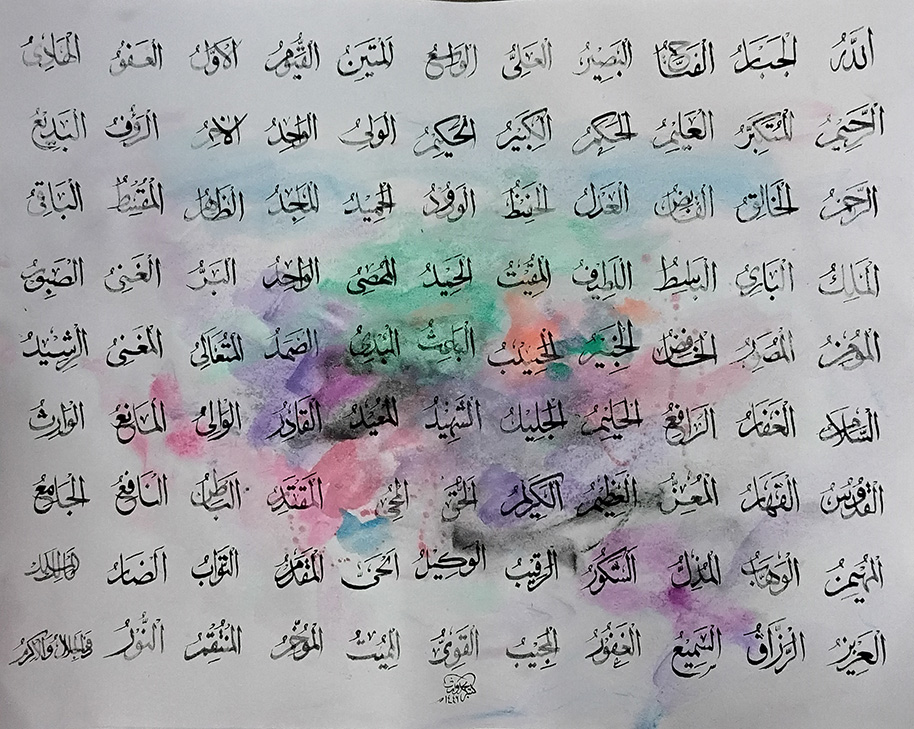 اللّٰهُ الْجَبَّارُ الْفَتَّاحُ الْبَصِيْرُ الْعَلِيُّ الْوَاسِعُ الْمَتِيْنُ الْقَيُّوْمُ الْاَوَّلُ الْعَفُوُّ الْهَادِيْ
الرَّحِيْمُ الْمُتَكَبِّرُ الْعَلِيْمُ الْحَكَمُ الْكَبِيْرُ الْحَكِيْمُ الْوَلِيُّ الْوَاجِدُ الْاٰخِرُ الرَّؤُفُ الْبَدِيْعُ
الرَّحْمٰنُ الْخَالِقُ الْقَابِضُ الْعَدْلُ الْحَفِيْظُ الْوَدُوْدُ الْحَمِيْدُ الْمَاجِدُ الظَّاهِرُ الْمُقْسِطُ الْبَاقِيْ
الْمَلِكُ الْبَارِئُ الْبَاسِطُ اللَّطِيْفُ الْمُقِيْتُ الْمَجِيْدُ الْمُحْصِيْ الْوَاحِدُ الْبَرُّ الْغَنِيُّ الصَّبُوْرُ
الْمُؤْمِنُ الْمُصَوِّرُ الْخَافِضُ الْخَبِيْرُ الْحَسِيْبُ الْبَاعِثُ الْمُبْدِئُ الصَّمَدُ الْمُتَعَالِيْ الْمُغْنِيْ الرَّشِيْدُ
السَّلَامُ الْغَفَّارُ الرَّافِعُ الْحَلِيْمُ الْجَلِيْلُ الشَّهِيْدُ الْمُعِيْدُ الْقَادِرُ الْوَالِيْ الْمَانِعُ الْوَارِثُ
الْقُدُّوْسُ الْقَهَّارُ الْمُعِزُّ الْعَظِيْمُ الْكَرِيْمُ الْحَقُّ الْمُحْيِيْ الْمُقْتَدِرُ الْبَاطِنُ النَّافِعُ الْجَامِعُ
الْمُهَيْمِنُ الْوَهَّابُ الْمُذِلُّ الشَّكُوْرُ الرَّقِيْبُ الْوَكِيْلُ الْحَيُّ الْمُقَدِّمُ التَّوَّابُ الضَّارُّ مَالِكُ الْمُلْكِ
الْعَزِيْزُ الرَّزَّاقُ السَّمِيْعُ الْغَفُوْرُ الْمُجِيْبُ الْقَوِيُّ الْمُمِيْتُ الْمُؤَخِّرُ الْمُنْتَقِمُ النُّوْرُ ذُوالْجَلَالِ وَالْاِكْرَامِ
١٤٤٦